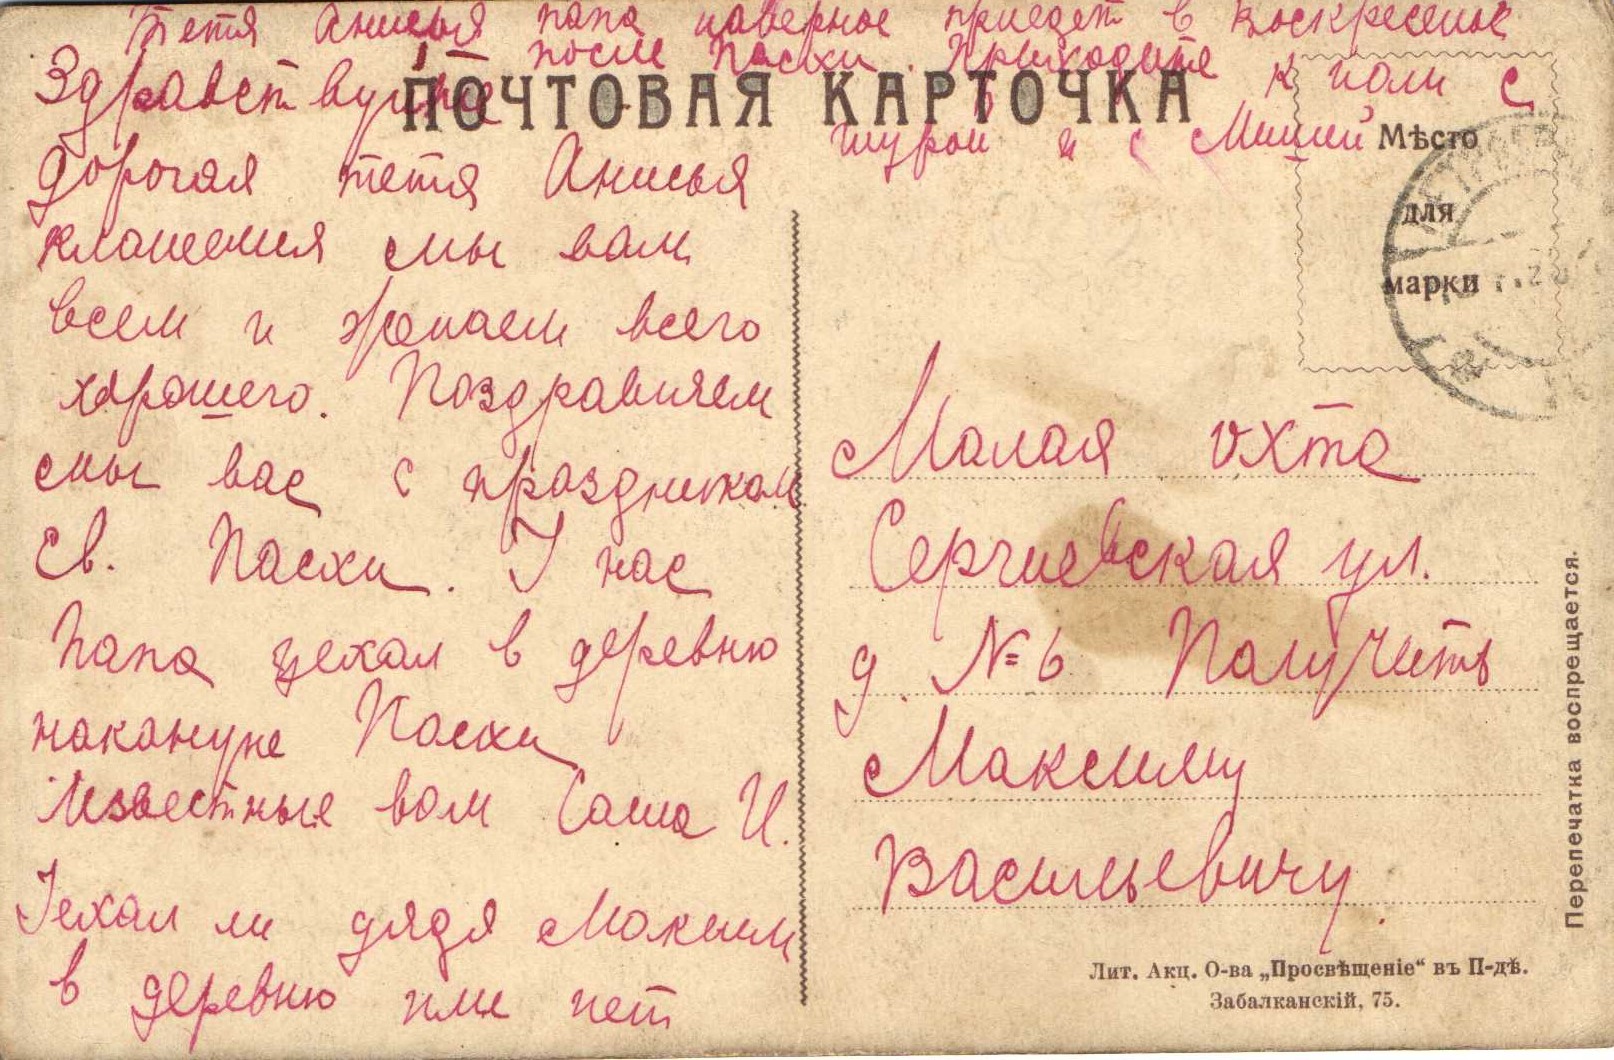 Тетя Анисья папа наверное приедет в воскресенье
после Пасхи. Приходите к поли с
шурой и с Мишей
ПОЧТОВАЯ КАРТОЧКА
Мѣсто
для
марки
Здравствуйте
дорогая тетя Анисья
кланяемся мы вам
всем и желаем всего
хорошего. Поздравляем
мы вас с праздником
Св. Пасхи. У нас
Папа уехал в деревню
накануне Пасхи
Известные вам Саша И.
Уехал ли дядя Максим
в деревню или нет
Малая Охта
Сергиевская ул.
д. № 6 Получить
Максиму
Васильевичу.
Перепечатка воспрещается.
Лит. Акц. О-ва „Просвѣщеніе“ въ П-дѣ.
Забалканскій, 75.